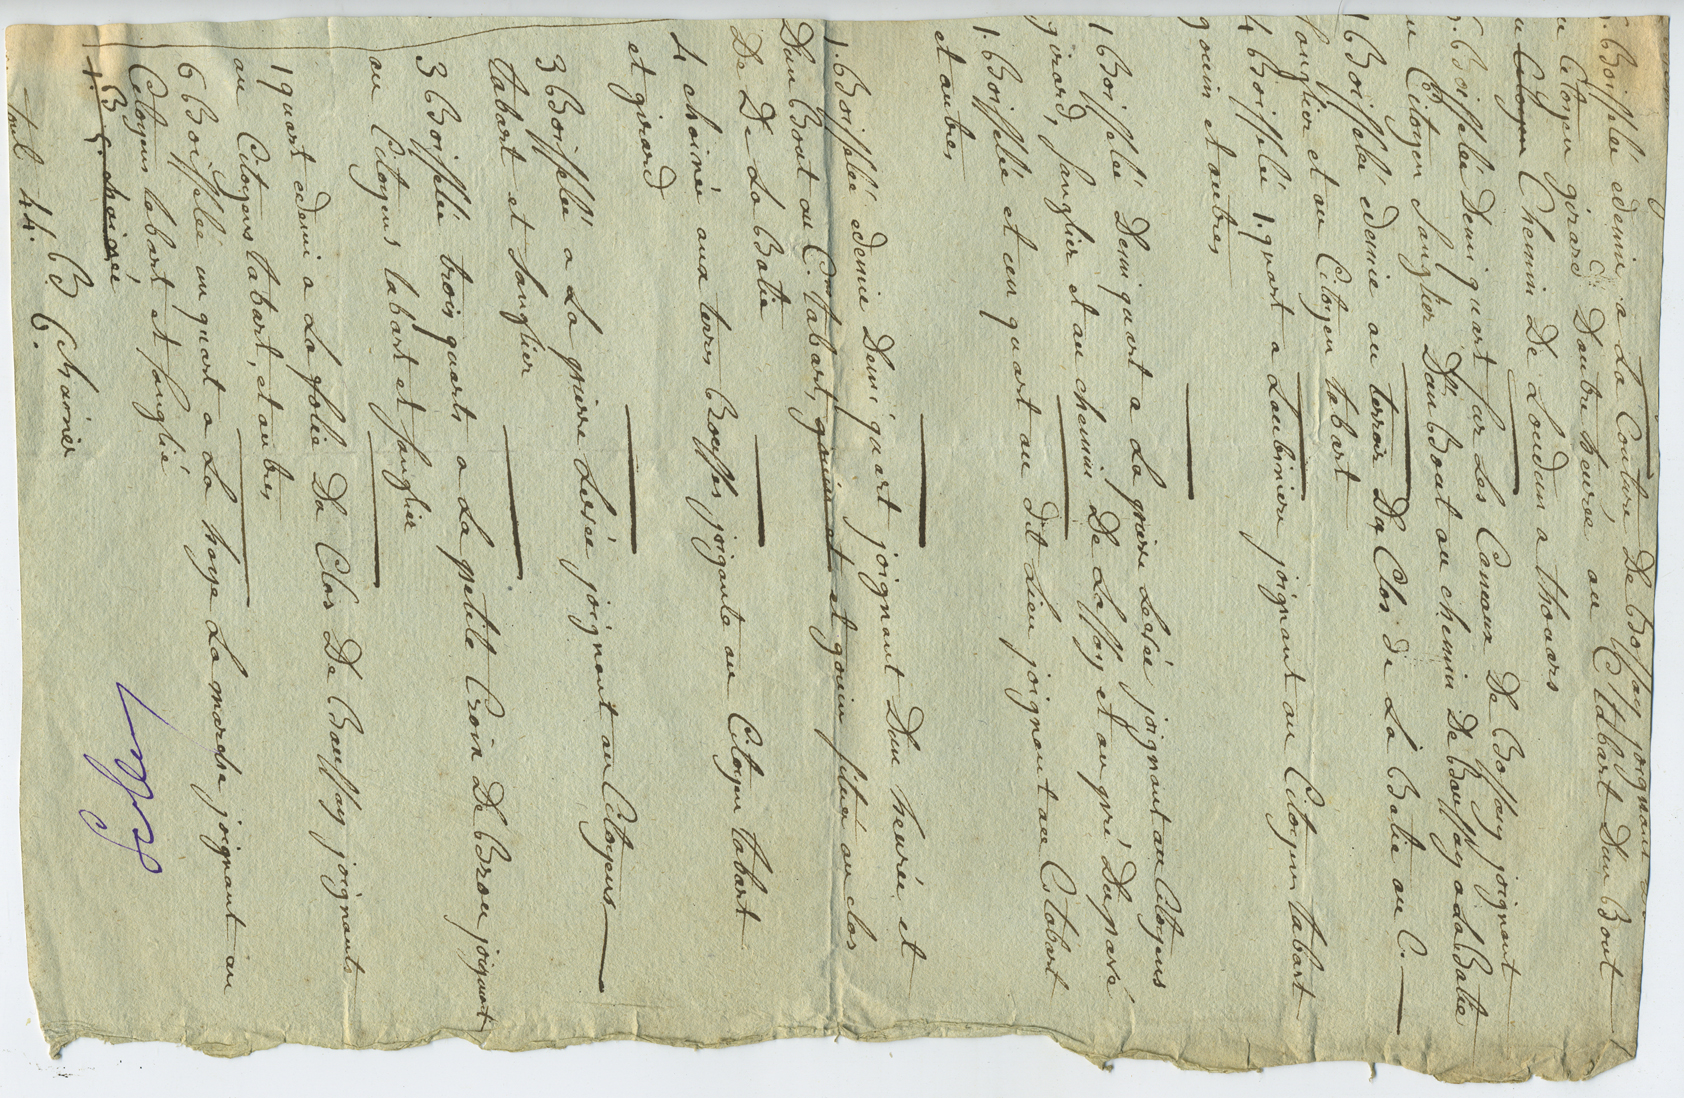 1. Boisselée edemie a La Couture, De Bossay joignant
au Citoyen girard D'autre heuree au C. tabart D'un Bout
au Citoyen Chemin De Loudun a thouars
Boisselée Demi quart sur Les Caneaux De Bossay joignant
au Citoyen Sanglier D'un Bout au chemin De Baussay a La Batie
1 Boisselée edemie au terroir Du Clos de La Batie au C.
Sanglier et au Citoyen tabart
4 Boisselée 1. quart a Laubiniere joignant au Citoyen tabart
gouin et autres
1 Boisselée Demi quart a La pierre Levée joignant au Citoyens
girard, Sanglier et au chemin De Laffay et au pré Dupavé
1. Boisselée et un quart au dit Lieu joignant au C. tabart
et autres
1. Boisselée edemie Demi quart joignant D'une heurée et
D'un Bout au C.en tabart, gouin et et gouin situé au clos
De De La Batie
4 chainée aux terres Brousses joigante au Citoyen tabart
et girard
3 Boisselée a La pierre Levée joignant au Citoyens
tabart et Sanglier
3 Boisselée trois quarts a La petite Croix De Brou joignant
au Citoyens tabart et Sanglier
1 quart edemi a La folie Du Clos De Baussay joignants
au Citoyens tabart, et autres
6 Boisselée un quart a La haye La marche joignant au
Citoyens tabart et Sanglié
1. B 6. chainée
total 44. B 6 chainée